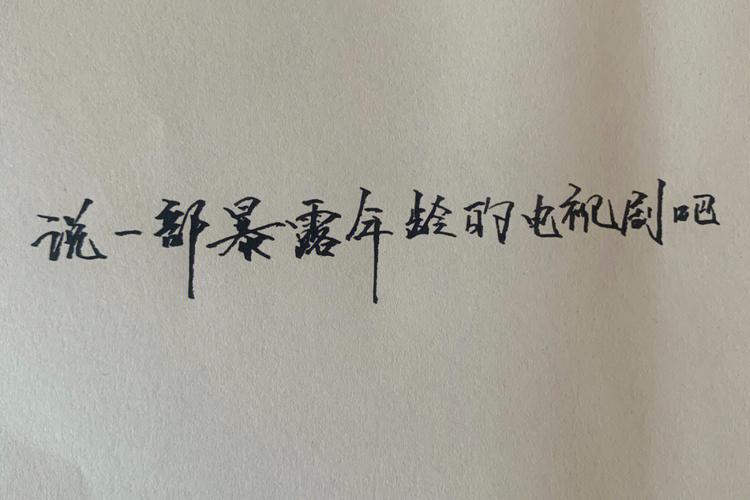 说一部暴露年龄的电视剧吧